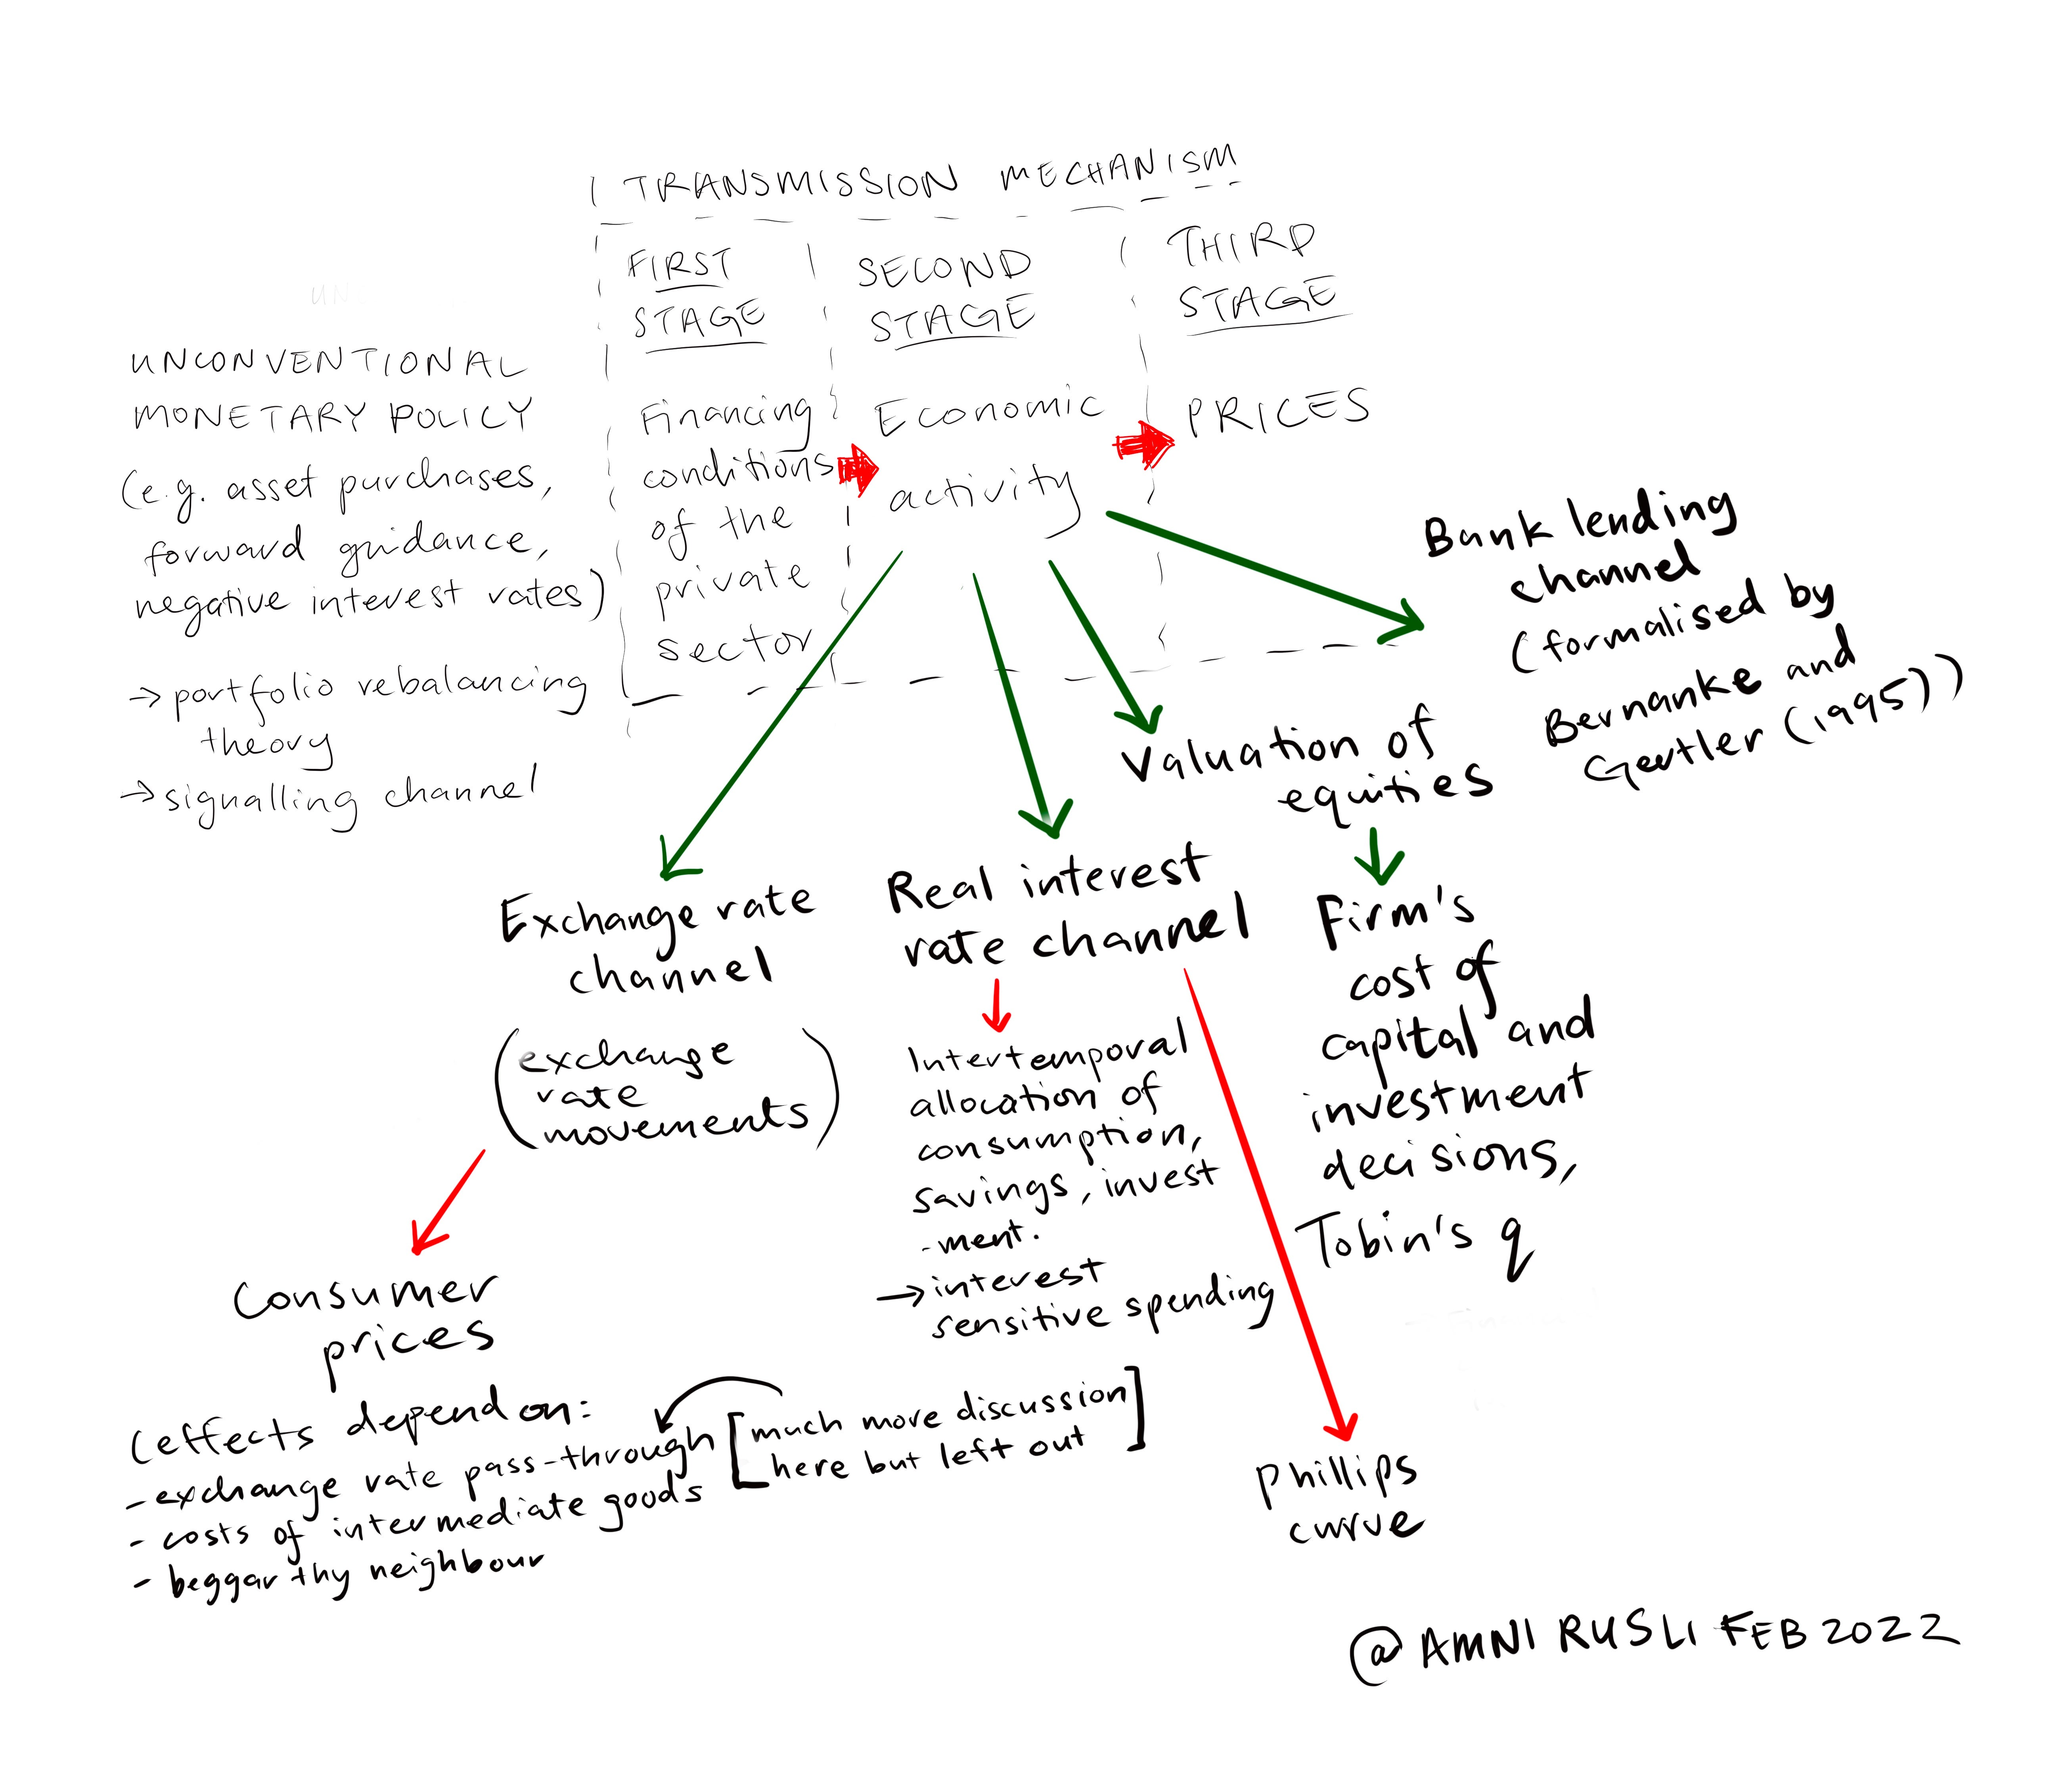 TRANSMISSION MECHANISM
FIRST
STAGE
Financing
conditions
of the
private
sector
SECOND
STAGE
Economic
activity
THIRD
STAGE
PRICES
UNCONVENTIONAL
MONETARY POLICY
(e.g. asset purchases,
forward guidance,
negative interest rates)
→ portfolio rebalancing
theory
→ signalling channel
Bank lending
channel
(formalised by
Bernanke and
Gertler (1995))
Valuation of
equities
Firm's
cost of
capital and
investment
decisions,
Tobin's q
Real interest
rate channel
Intertemporal
allocation of
consumption,
savings, invest
-ment.
→ interest
sensitive spending
Phillips
curve
Exchange rate
channel
(exchange
rate
movements)
Consumer
prices
(effects depend on:
- exchange rate pass-through
- costs of intermediate goods
- beggar thy neighbour
[much more discussion
here but left out]
@AMNI RUSLI FEB 2022